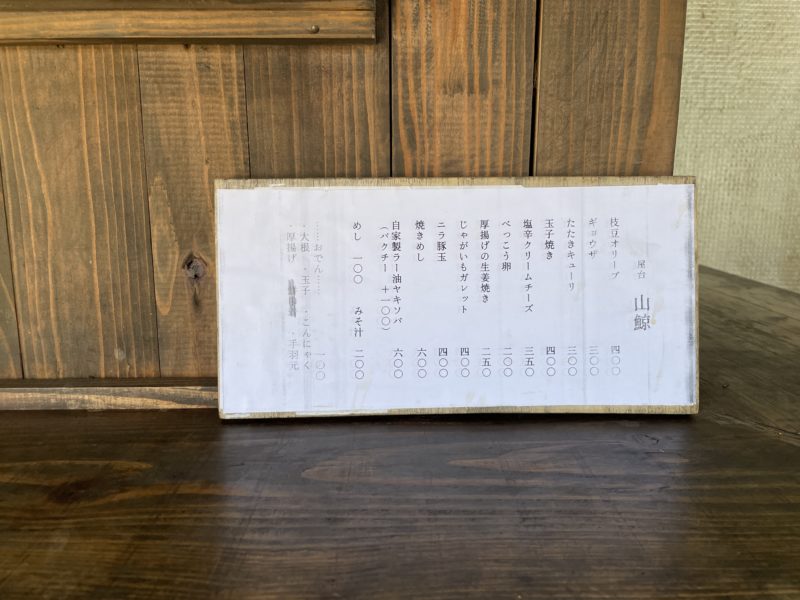 屋台 山鯨
枝豆オリーブ 四〇〇
ギョウザ 三〇〇
たたきキューリ 三〇〇
玉子焼き 四〇〇
塩辛クリームチーズ 三五〇
べっこう卵 二〇〇
厚揚げの生姜焼き 二五〇
じゃがいもガレット 四〇〇
ニラ豚玉 四〇〇
焼きめし 六〇〇
自家製ラー油ヤキソバ 六〇〇
（パクチー ＋一〇〇）
めし 一〇〇 みそ汁 二〇〇
……おでん…… 一〇〇
・大根 ・玉子 ・こんにゃく
・厚揚げ ・手羽元